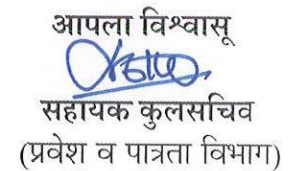 आपला विश्वासू
सहायक कुलसचिव
(प्रवेश व पात्रता विभाग)